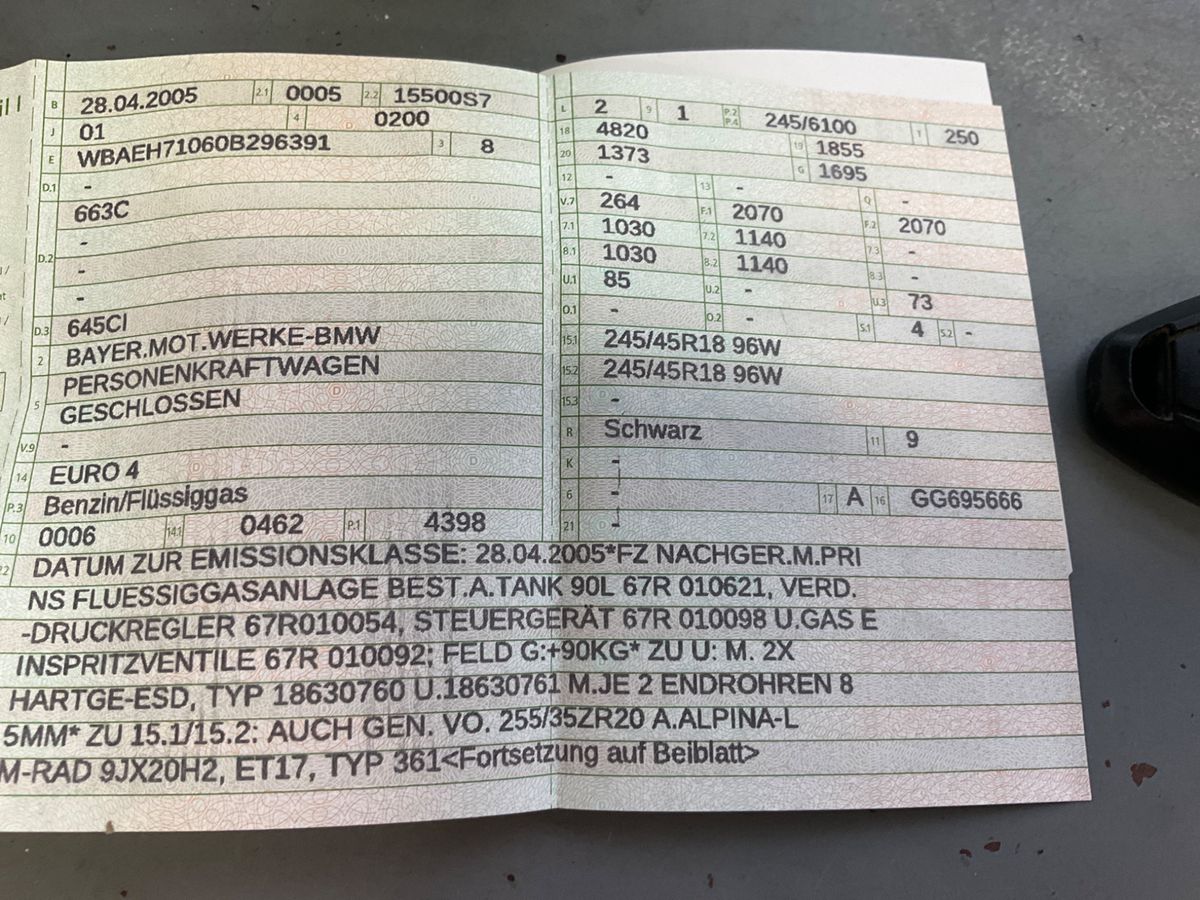 il I
B 28.04.2005 2.1 0005 2.2 15500S7
J 01 4 0200
E WBAEH71060B296391 3 8
D.1 -
663C
D.2 -
-
-
D.3 645CI
2 BAYER.MOT.WERKE-BMW
PERSONENKRAFTWAGEN
5 GESCHLOSSEN
V.9 -
14 EURO 4
P.3 Benzin/Flüssiggas
10 0006 14.1 0462 P.1 4398
L 2 9 1 P.2 P.4 245/6100 T 250
18 4820 19 1855
20 1373 G 1695
12 - 13 - Q -
V.7 264 F.1 2070 F.2 2070
7.1 1030 7.2 1140 7.3 -
8.1 1030 8.2 1140 8.3 -
U.1 85 U.2 - U.3 73
O.1 - O.2 - S.1 4 S.2 -
15.1 245/45R18 96W
15.2 245/45R18 96W
15.3 -
R Schwarz 11 9
K -
6 - 17 A 16 GG695666
21 -
22 DATUM ZUR EMISSIONSKLASSE: 28.04.2005*FZ NACHGER.M.PRI
NS FLUESSIGGASANLAGE BEST.A.TANK 90L 67R 010621, VERD.
-DRUCKREGLER 67R010054, STEUERGERÄT 67R 010098 U.GAS E
INSPRITZVENTILE 67R 010092; FELD G:+90KG* ZU U: M. 2X
HARTGE-ESD, TYP 18630760 U.18630761 M.JE 2 ENDROHREN 8
5MM* ZU 15.1/15.2: AUCH GEN. VO. 255/35ZR20 A.ALPINA-L
M-RAD 9JX20H2, ET17, TYP 361<Fortsetzung auf Beiblatt>